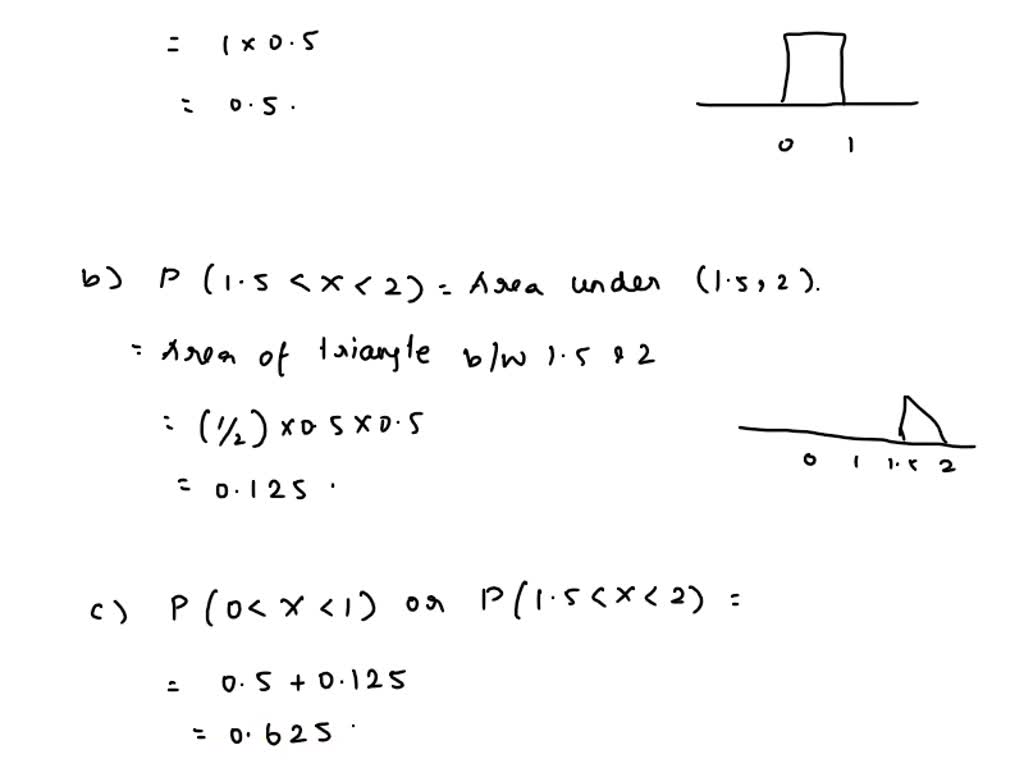 = 1 × 0.5
= 0.5.
0 1
b) P (1.5 < x < 2) = Area under (1.5, 2).
= Area of triangle b/w 1.5 & 2
= (1/2) × 0.5 × 0.5
= 0.125.
0 1 1.5 2
c) P(0 < x < 1) or P(1.5 < x < 2) =
= 0.5 + 0.125
= 0.625.